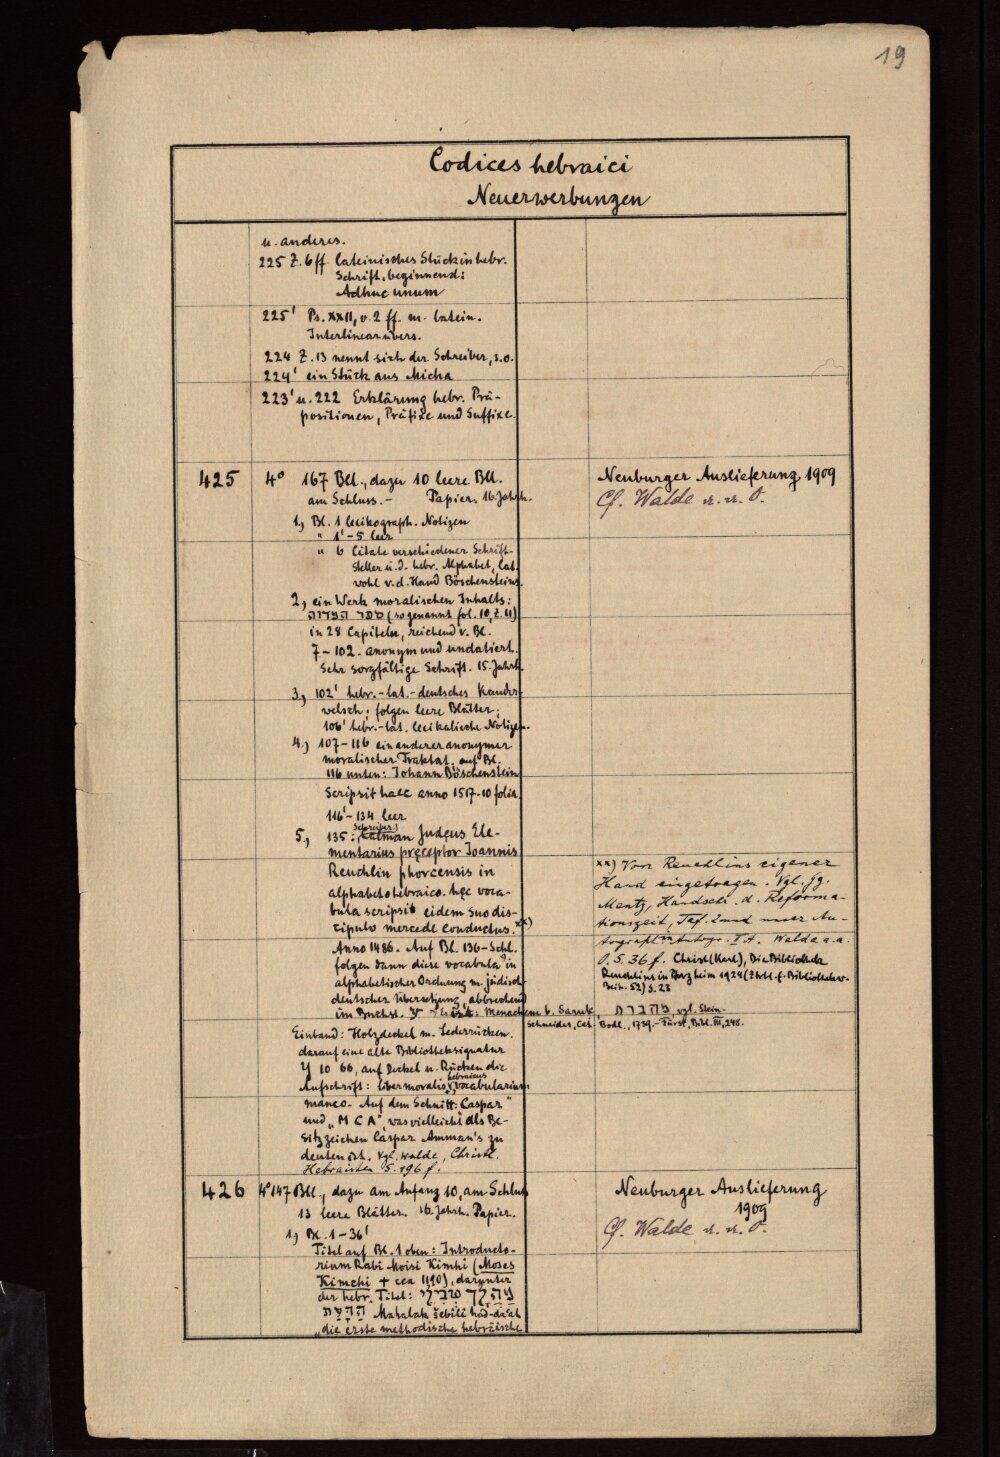 19
Codices hebraici
Neuerwerbungen
u. anderes.
225 Z. 6 ff. lateinisches Stück in hebr.
Schrift, beginnend:
Adhuc unum
225' Ps. XXII, v. 2 ff. m. latein.
Interlinearübers.
224 Z. 13 nennt sich der Schreiber, s.o.
224' ein Stück aus Micha
223' u. 222 Erklärung hebr. Prä-
positionen, Präfixe und Suffixe.
425 4° 167 Bll., dazu 10 leere Bll.
am Schluss. - Papier. 16. Jahrh.
1, Bl. 1 lexikograph. Notizen
" 1'-5 leer
" 6 Citate verschiedener Schrift-
steller ü. d. hebr. Alphabet, lat.
wohl v. d. Hand Böschensteins.
2, ein Werk moralischen Inhalts:
ספר המדות (so genannt fol. 10, Z. 11)
in 28 Capiteln, reichend v. Bl.
7-102. anonym und undatiert.
Sehr sorgfältige Schrift. 15. Jahrh.
3, 102' hebr.-lat.-deutsches Kauder-
welsch; folgen leere Blätter;
106' hebr.-lat. lexikalische Notizen.
4, 107-116 ein anderer anonymer
moralischer Traktat. auf Bl.
116 unten: Johann Böschenstein
scripsit haec anno 1517. 10 folia.
116'-134 leer
5, 135: (Schreiber:) Calman Judęus Ele-
mentarius pręceptor Ioannis
Reuchlin phorcensis in
alphabeto hebraico. hęc voca-
bula scripsit eidem suo dis-
cipulo mercede conductus. xx)
Anno 1486. Auf Bl. 136-Schl.
folgen dann diese vocabula in
alphabetischer Ordnung m. jüdisch-
deutscher Übersetzung, abbrechend
im Buchst. ist: Menachem b. Saruk, מחברת vgl. Stein-
schneider, Cat. Bodl., 1739. - Fürst, Bibl. III, 248.
Einband: Holzdeckel m. Lederrücken.
darauf eine alte Bibliothekssignatur
Y 10 66, auf Deckel u. Rücken die
Aufschrift: liber moralis, hebraicus vocabularium
manco. Auf dem Schnitt: "Caspar"
und "M C A", was vielleicht als Be-
sitzzeichen Caspar Amman's zu
deuten ist. Vgl. Walde, Christl.
Hebraisten S. 196 f.
Neuburger Auslieferung 1909
Cf. Walde a. a. O.
xx) Von Reuchlins eigener
Hand eingetragen. Vgl. Jg.
Mentz, Handschr. d. Reforma-
tionszeit, Taf. 2
Walde a. a.
O. S. 36 f. Christ (Karl), Die Bibliothek
Reuchlins in Pforzheim 1924 (Zbl. f. Bibliothekw.
Beih. 52) S. 23
426 4° 147 Bll., dazu am Anfang 10, am Schluss
13 leere Blätter. 16. Jahrh. Papier.
1, Bl. 1-36'
Titel auf Bl. 1 oben: Introducto-
rium Rabi Moisi Kimhi (Moses
Kimchi + cca 1190), darunter
der hebr. Titel: מַהֲלַךְ שְׁבִילֵי
הַדַּעַת Mahalak šebîlê had-daʿat
"die erste methodische hebräische
Neuburger Auslieferung
1909
Cf. Walde a. a. O.